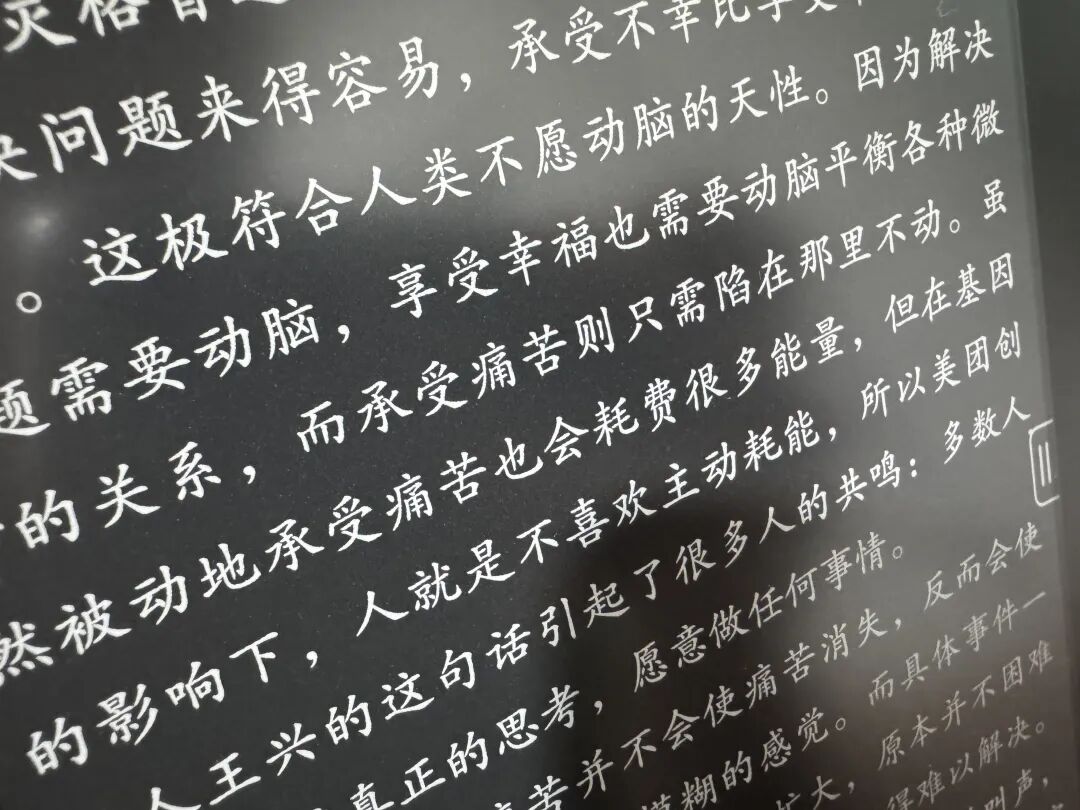 问题来得容易，承受不幸比享受
。这极符合人类不愿动脑的天性。因为解决
题需要动脑，享受幸福也需要动脑平衡各种微
的关系，而承受痛苦则只需陷在那里不动。虽
然被动地承受痛苦也会耗费很多能量，但在基因
的影响下，人就是不喜欢主动耗能，所以美团创
人王兴的这句话引起了很多人的共鸣：多数人
真正的思考，愿意做任何事情。
苦并不会使痛苦消失，反而会使
模糊的感觉。而具体事件一
扩大，原本并不困难
得难以解决。